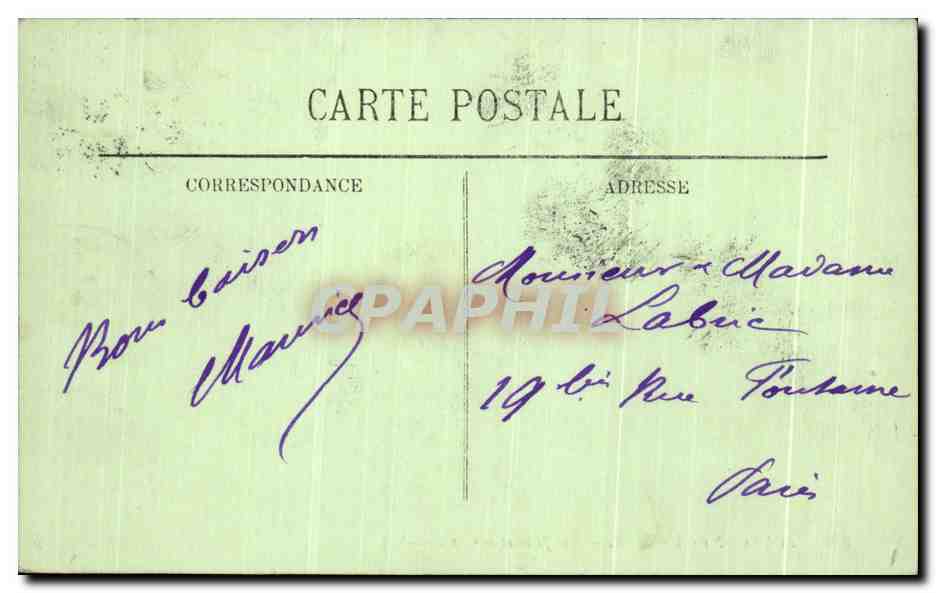 CARTE POSTALE
CORRESPONDANCE
Bons baisers
Maurice
ADRESSE
Monsieur & Madame
Labric
19 bis Rue Fontaine
Paris
CPAPHIL